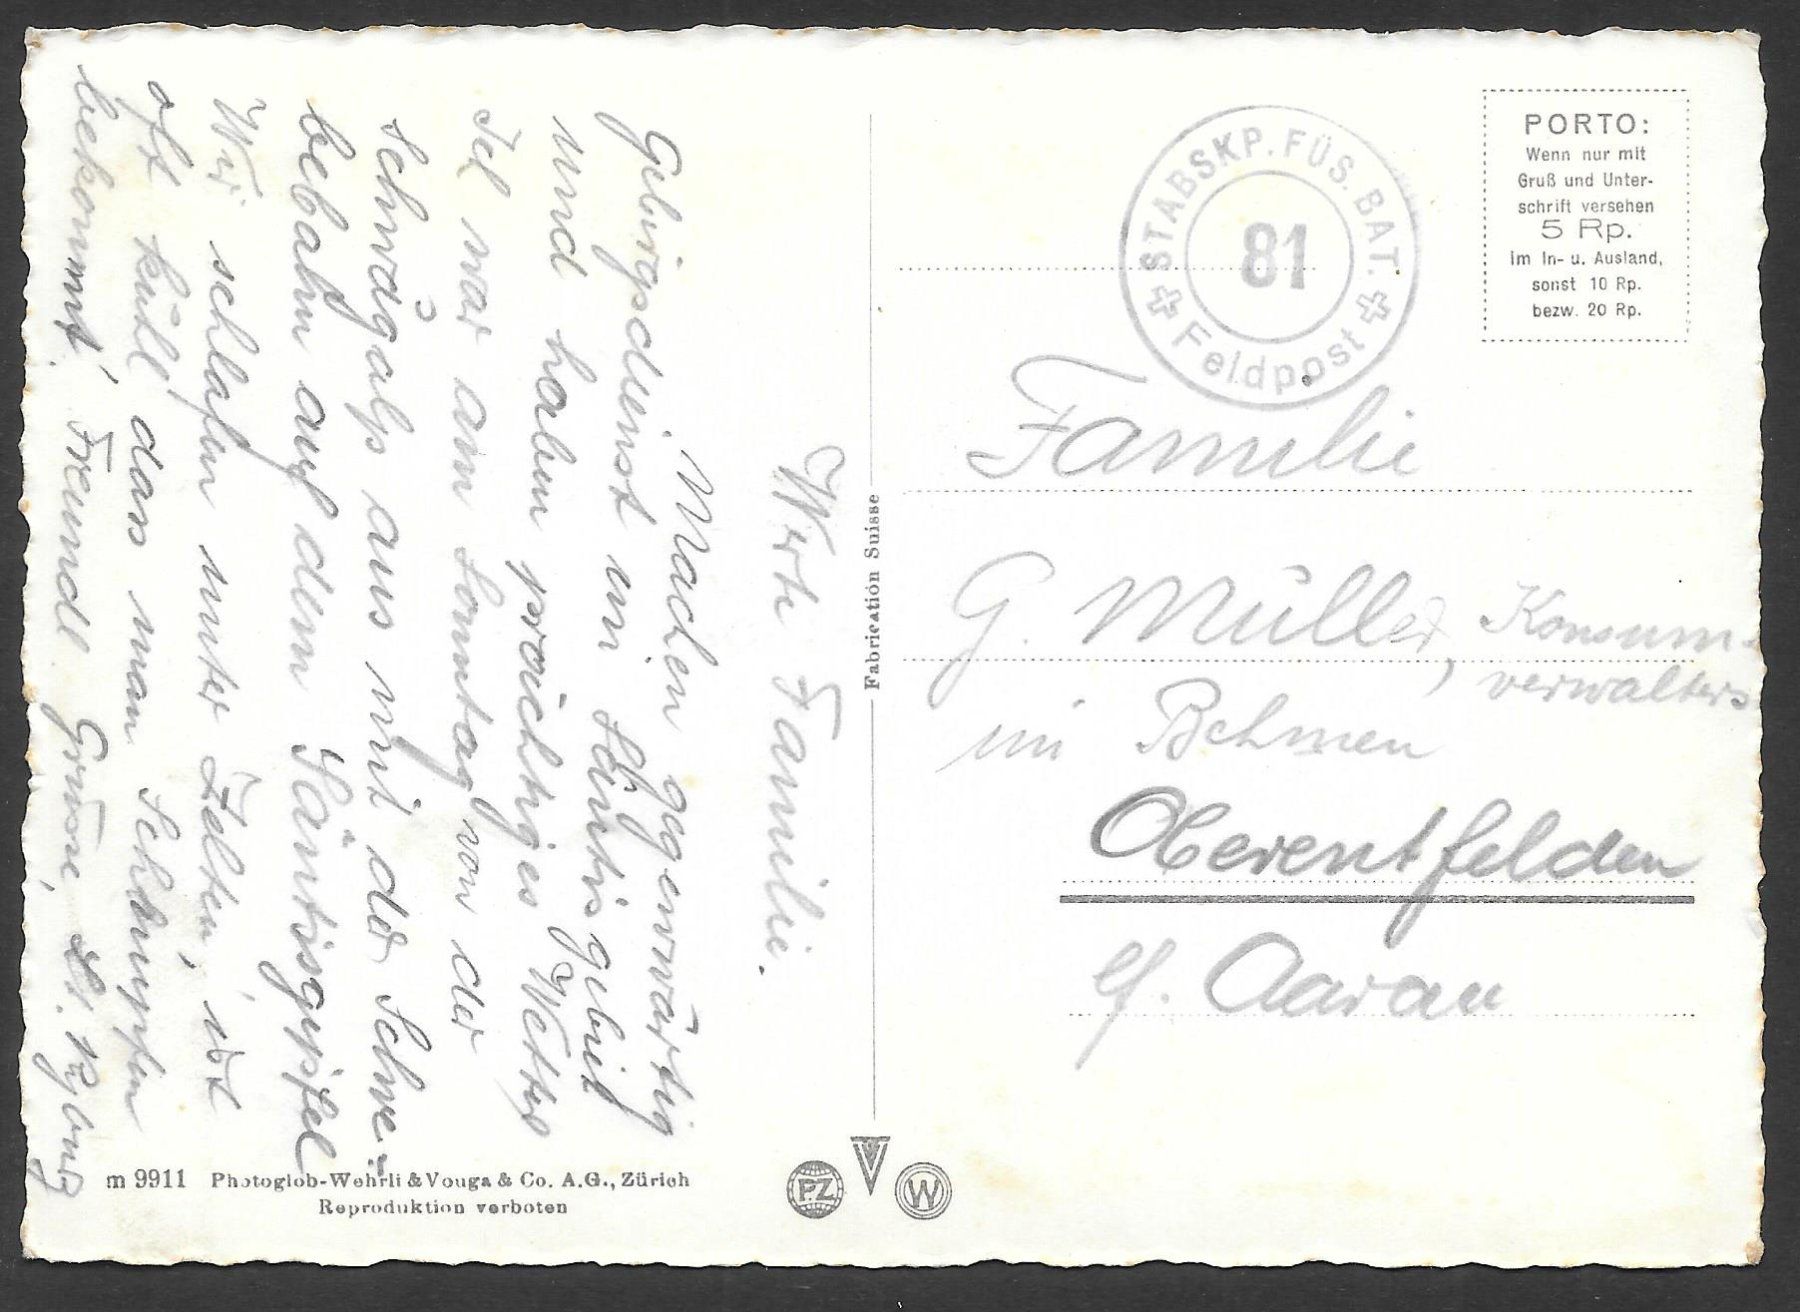 Werte Familie.
Machen gegenwärtig
Gebirgsdienst im Säntisgebiet
und haben prächtiges Wetter
Ich war am Sonntag von der
Schwägalp aus mit der Schwe-
bebahn auf dem Säntisgipfel
Wir schlafen unter Zelten, ist
oft kühl, dass man Schnupfen
bekommt. Freundl. Grüsse, Kyburz
Fabrication Suisse
STABSKP. FÜS. BAT.
81
Feldpost
PORTO:
Wenn nur mit
Gruß und Unter-
schrift versehen
5 Rp.
im In- u. Ausland,
sonst 10 Rp.
bezw. 20 Rp.
Familie
G. Müller, Konsum-
verwalters
im Behmen
Oberentfelden
b/. Aarau
m 9911 Photoglob-Wehrli & Vouga & Co. A.G., Zürich
Reproduktion verboten
PZ
V
W